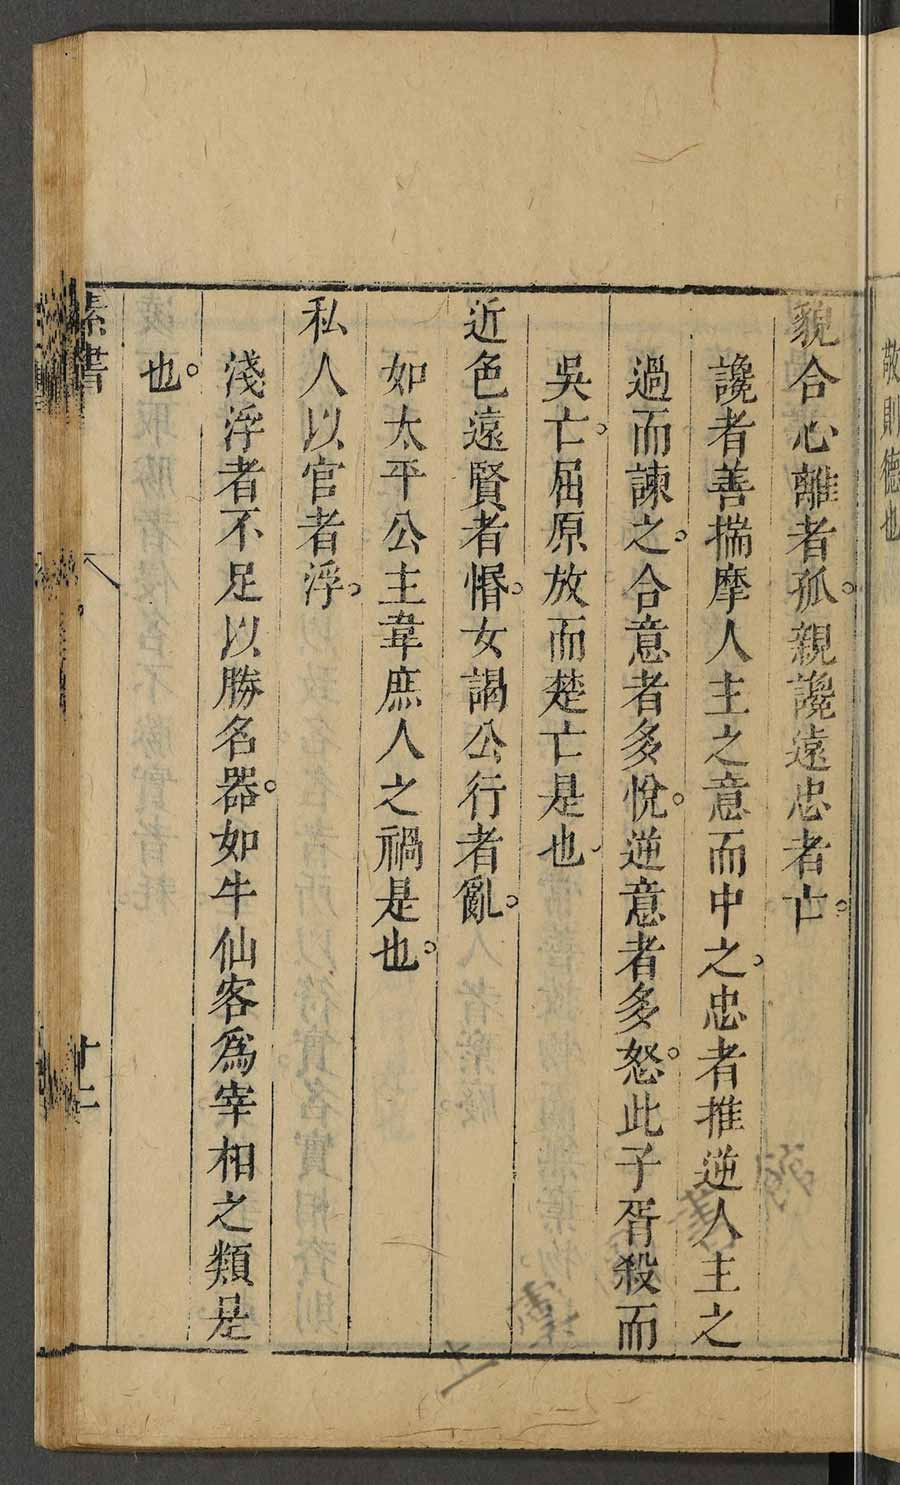 敬則德也
貌合心離者孤。親讒遠忠者亡。
讒者善揣摩人主之意而中之。忠者推逆人主之
過而諫之。合意者多悅。逆意者多怒。此子胥殺而
吳亡。屈原放而楚亡是也
近色遠賢者惽。女謁公行者亂。
如太平公主韋庶人之禍是也。
私人以官者浮。
淺浮者不足以勝名器。如牛仙客為宰相之類是
也。
素書
十二